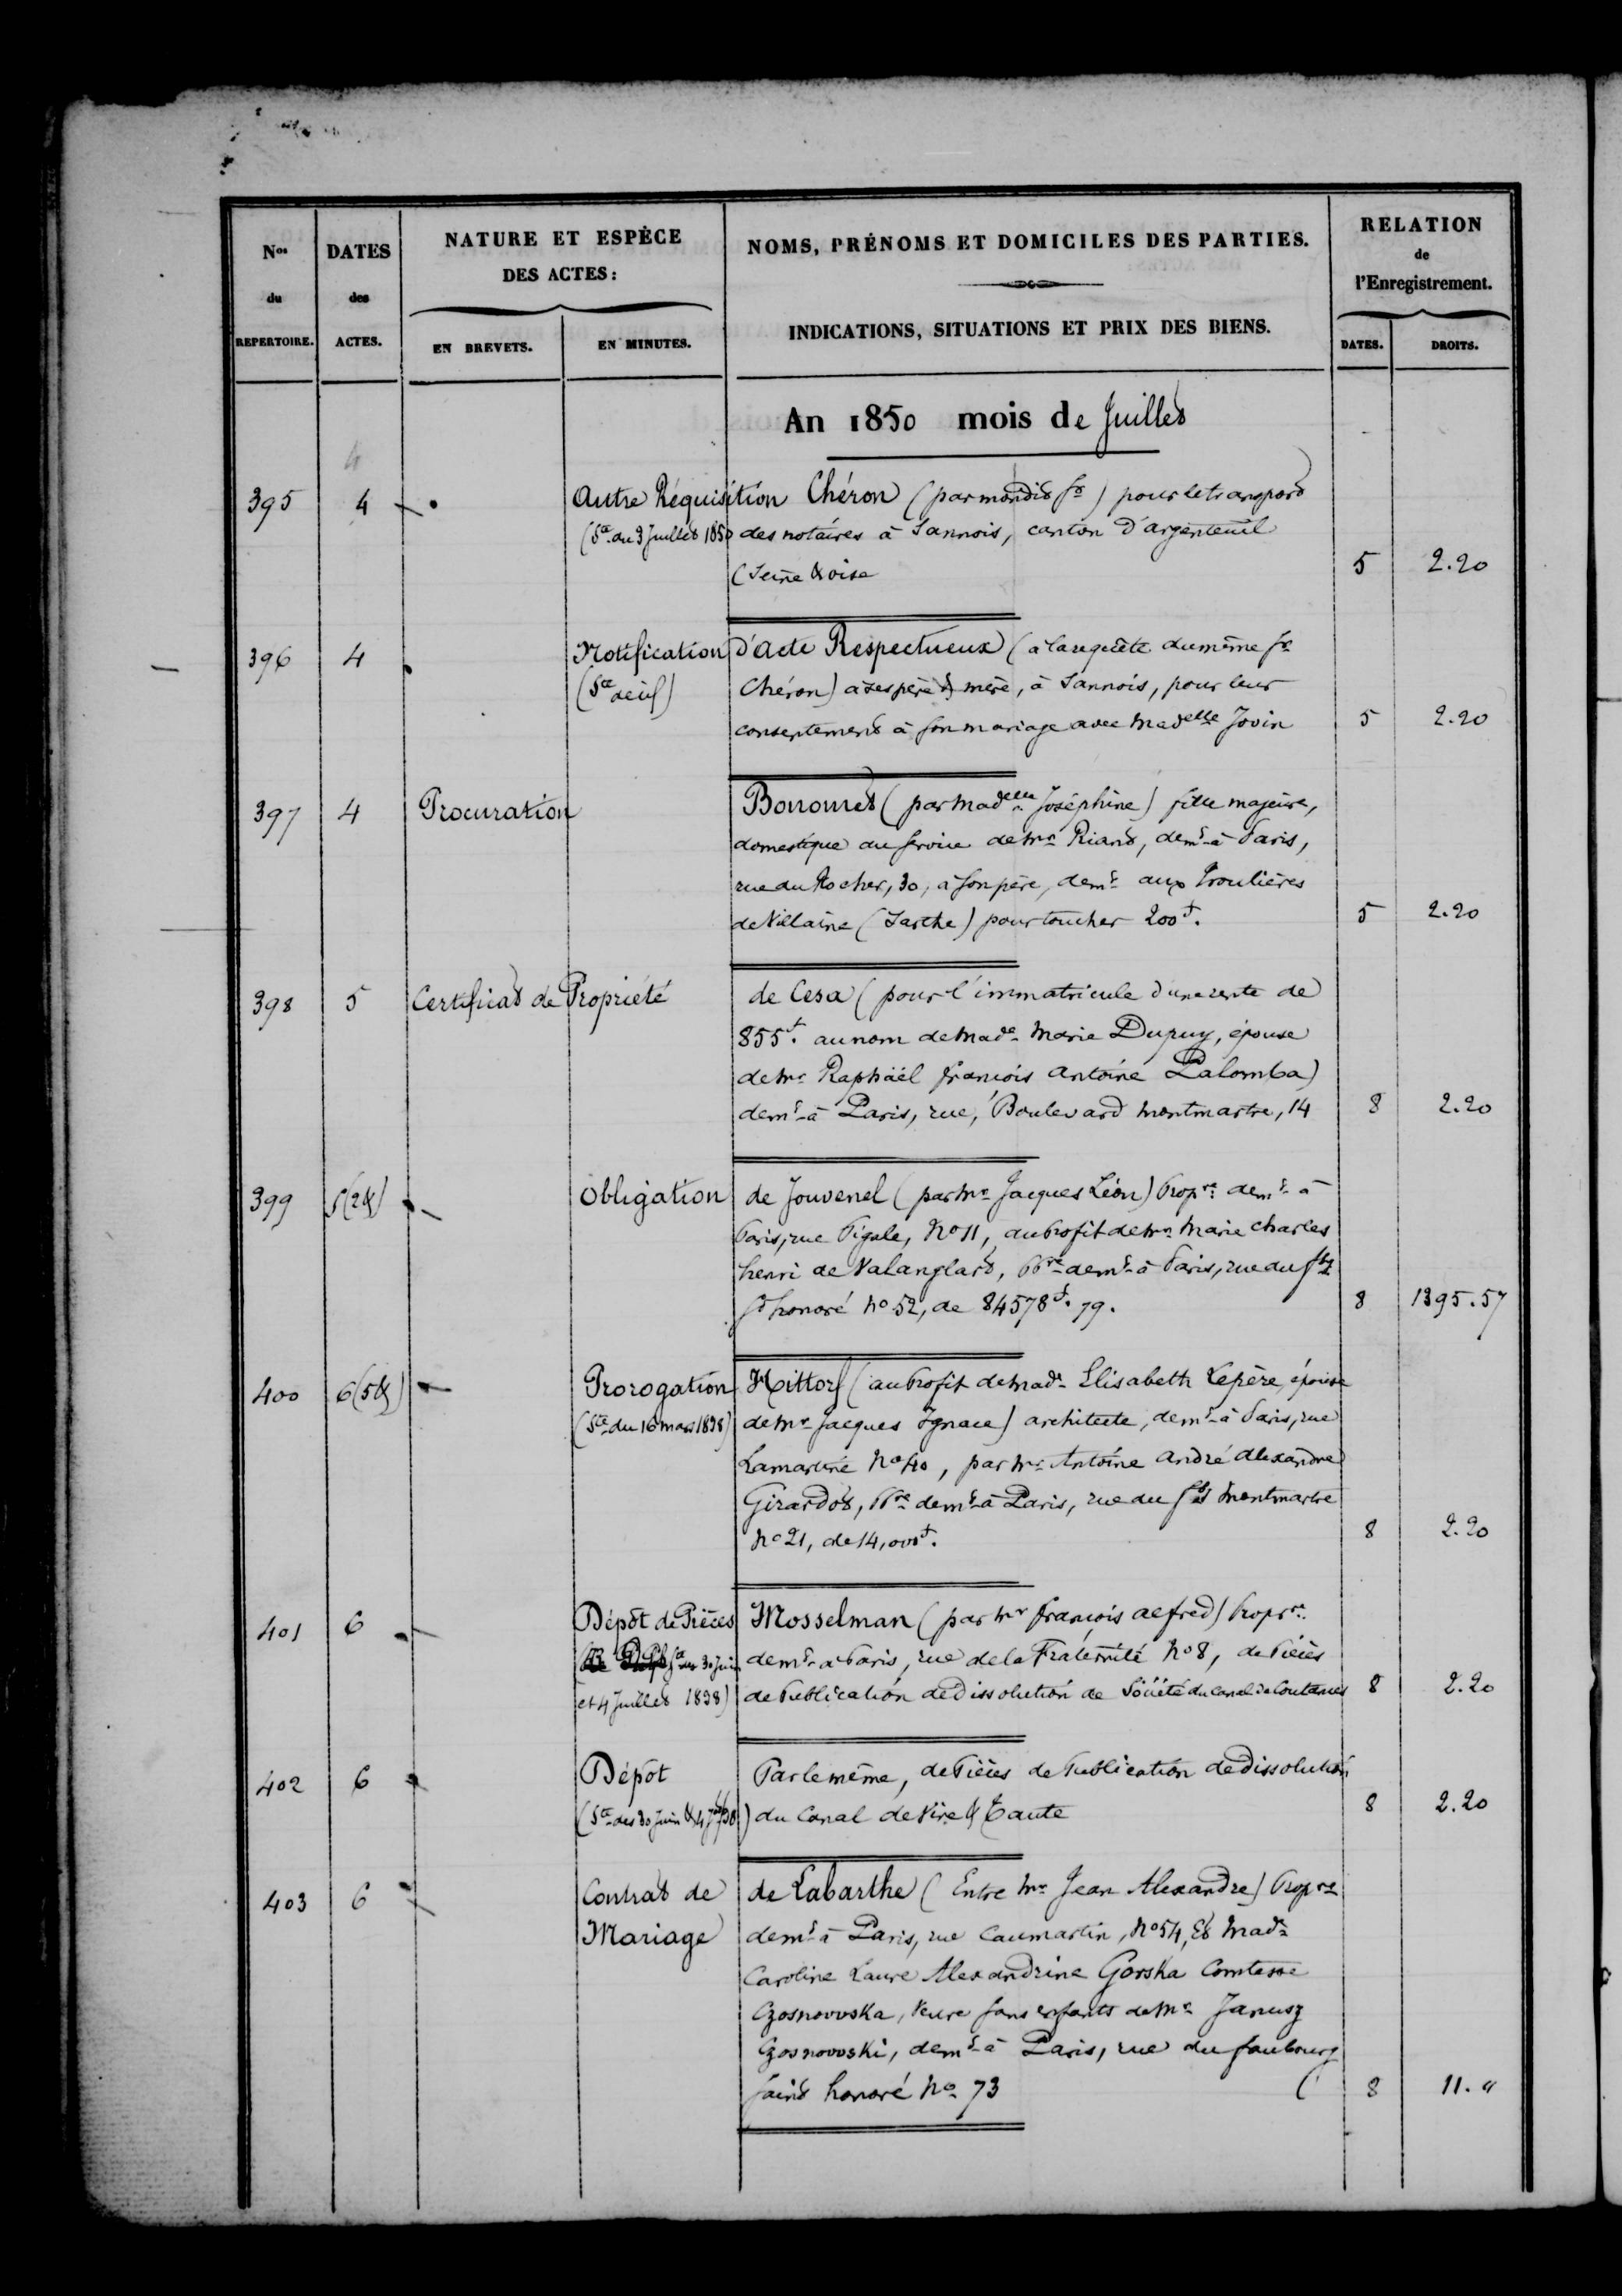 Nos du REPERTOIRE.
DATES des ACTES.
NATURE ET ESPÈCE DES ACTES:
EN BREVETS.
EN MINUTES.
NOMS, PRÉNOMS ET DOMICILES DES PARTIES.
INDICATIONS, SITUATIONS ET PRIX DES BIENS.
RELATION de l'Enregistrement.
DATES.
DROITS.
An 1850 mois de Juillet
4
395 4 Autre Réquisition Chéron (par mondit sr) pour le transport
(Ste du 3 Juillet 1850 des notaires à Sannois, canton d'argenteuil
(Seine & oise 5 2.20
396 4 Notification d'acte Respectueux (à la requête du même sr
(Ste deuil) Chéron) à ses père & mère, à Sannois, pour leur
consentement à son mariage avec Madelle Jovin 5 2.20
397 4 Procuration Bonomet (par Madelle Joséphine) fille majeure,
domestique au service de Mr Riant, demt à Paris,
rue du Rocher, 30, à son père, demt aux
de Villaine (Sarthe) pour toucher 200f. 5 2.20
398 5 Certificat de Propriété de Cesa (pour l'immatricule d'une rente de
855f. au nom de Made Marie Dupuy, épouse
de Mr Raphaël françois Antoine Palomba)
demt à Paris, rue, Boulevard Montmartre, 14 8 2.20
399 5(2&) Obligation de Jouvenel (par Mr Jacques Léon) Propre demt à
Paris, rue Pigale, No 11, au Profit de Mr Marie Charles
henri de Valanglart, Pre demt à Paris, rue du fbg
St honoré No 52, de 84578f. 79. 8 1395.57
400 6(5&) Prorogation Hittorf (au Profit de Made Elisabeth Lepère, épouse
(Ste du 16 mars 1838) de Mr Jacques Ignace) architecte, demt à Paris, rue
Lamartine No 40, par Mr Antoine André Alexandre
Girardot, Pre demt à Paris, rue du fbg Montmartre
No 21, de 14,000f. 8 2.20
401 6 Dépôt de Pièces Mosselman (par Mr françois alfred) Propre
Ste des 30 Juin demt à Paris, rue de la Fraternité No 8, de Pièces
et 4 Juillet 1838) de Publication de Dissolution de Société du Canal de Coutances 8 2.20
402 6 Dépôt Par le même, de Pièces de Publication de Dissolution
(Ste des 30 Juin & 4 Jet 38) du Canal de Vire & Taute 8 2.20
403 6 Contrat de de Labarthe (Entre Mr Jean Alexandre) Propre
Mariage demt à Paris, rue Caumartin, No 54, Et Made
Caroline Laure Alexandrine Gorska Comtesse
Czosnovoska, Veuve sans enfants de Mr Janusz
Czosnovoski, demt à Paris, rue du faubourg
saint honoré No 73 8 11."